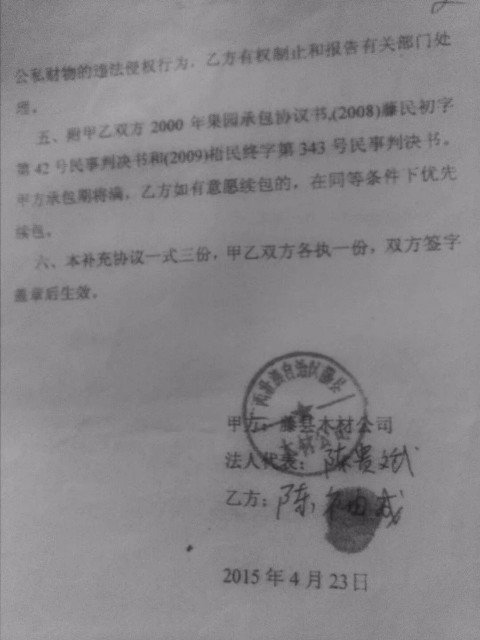 公私财物的违法侵权行为，乙方有权制止和报告有关部门处
理。
五、附甲乙双方 2000 年果园承包协议书,(2008)藤民初字
第 42 号民事判决书和(2009)梧民终字第 343 号民事判决书。
甲方承包期将满，乙方如有意愿续包的，在同等条件下优先
续包。
六、本补充协议一式三份，甲乙双方各执一份，双方签字
盖章后生效。
广西壮族自治区藤县
甲方：藤县木材公司
法人代表：陈贵斌
乙方：陈
2015 年 4 月 23 日